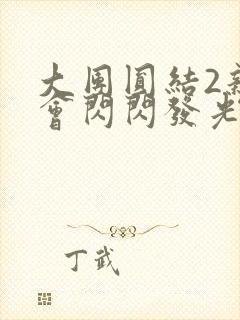 大团圓結2新
會閃閃發光
丁武